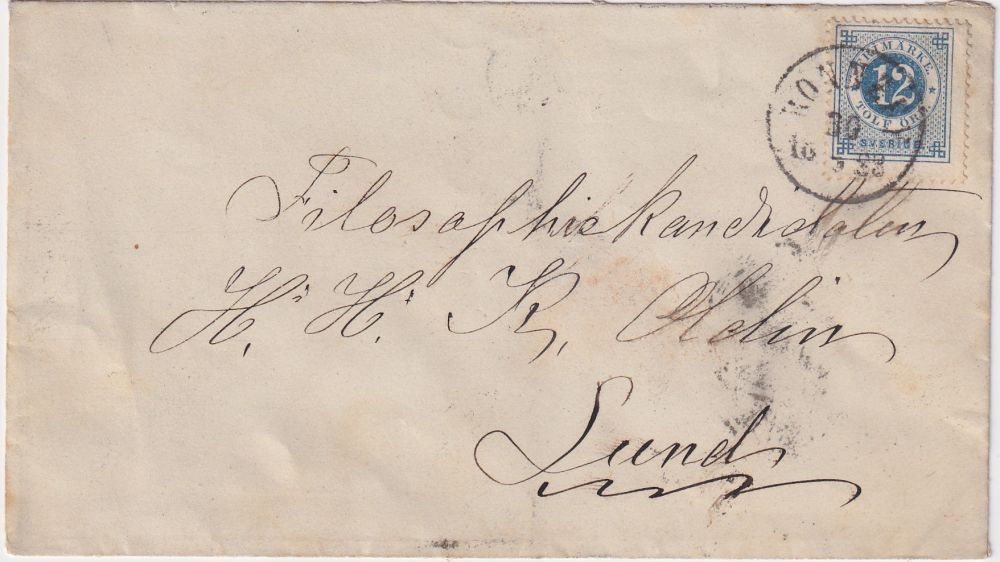 FRIMÄRKE
12
TOLF ÖRE
SVERIGE
30
18 5 83
Filosophiekandidaten
H. H. K. Odin
Lund